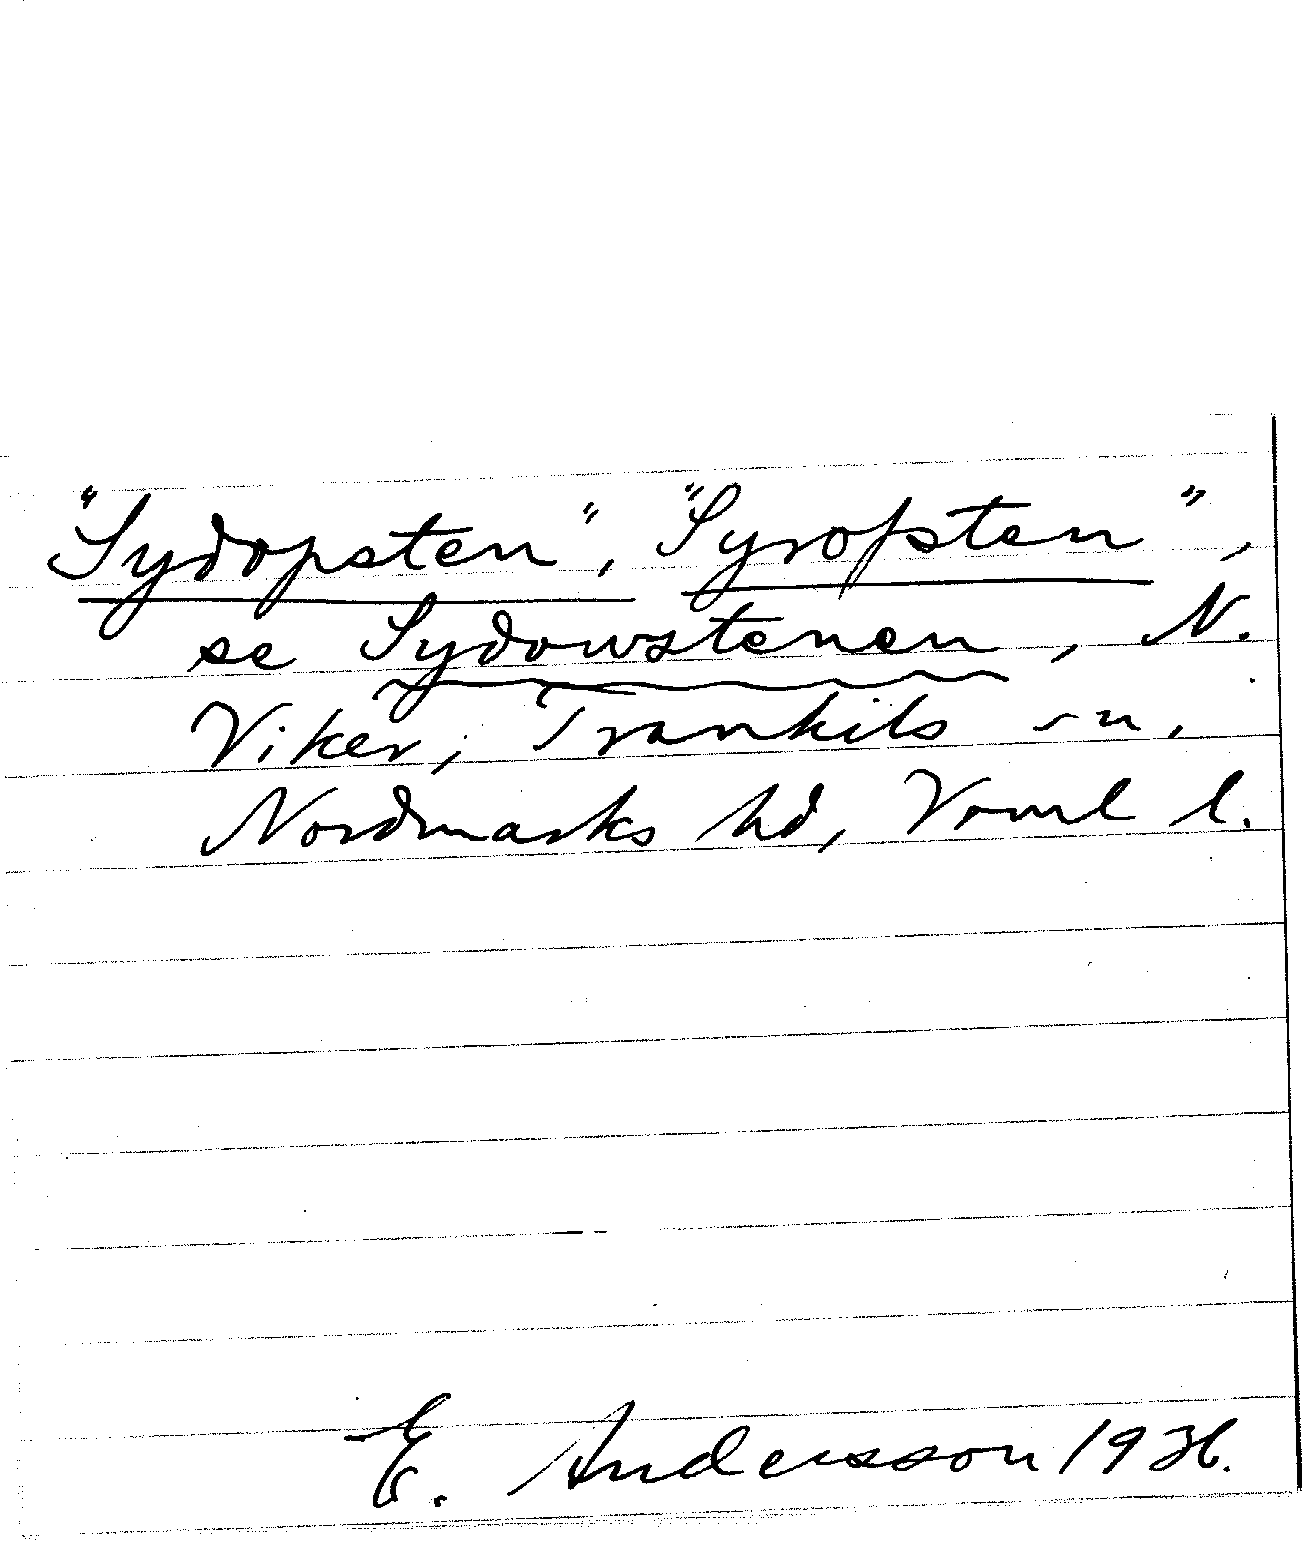 "Sydopsten", "Syropsten",
se Sydowstenen, N.
Viker, Trankils sn,
Nordmarks hd, Vrml l.
E. Andersson 1936.